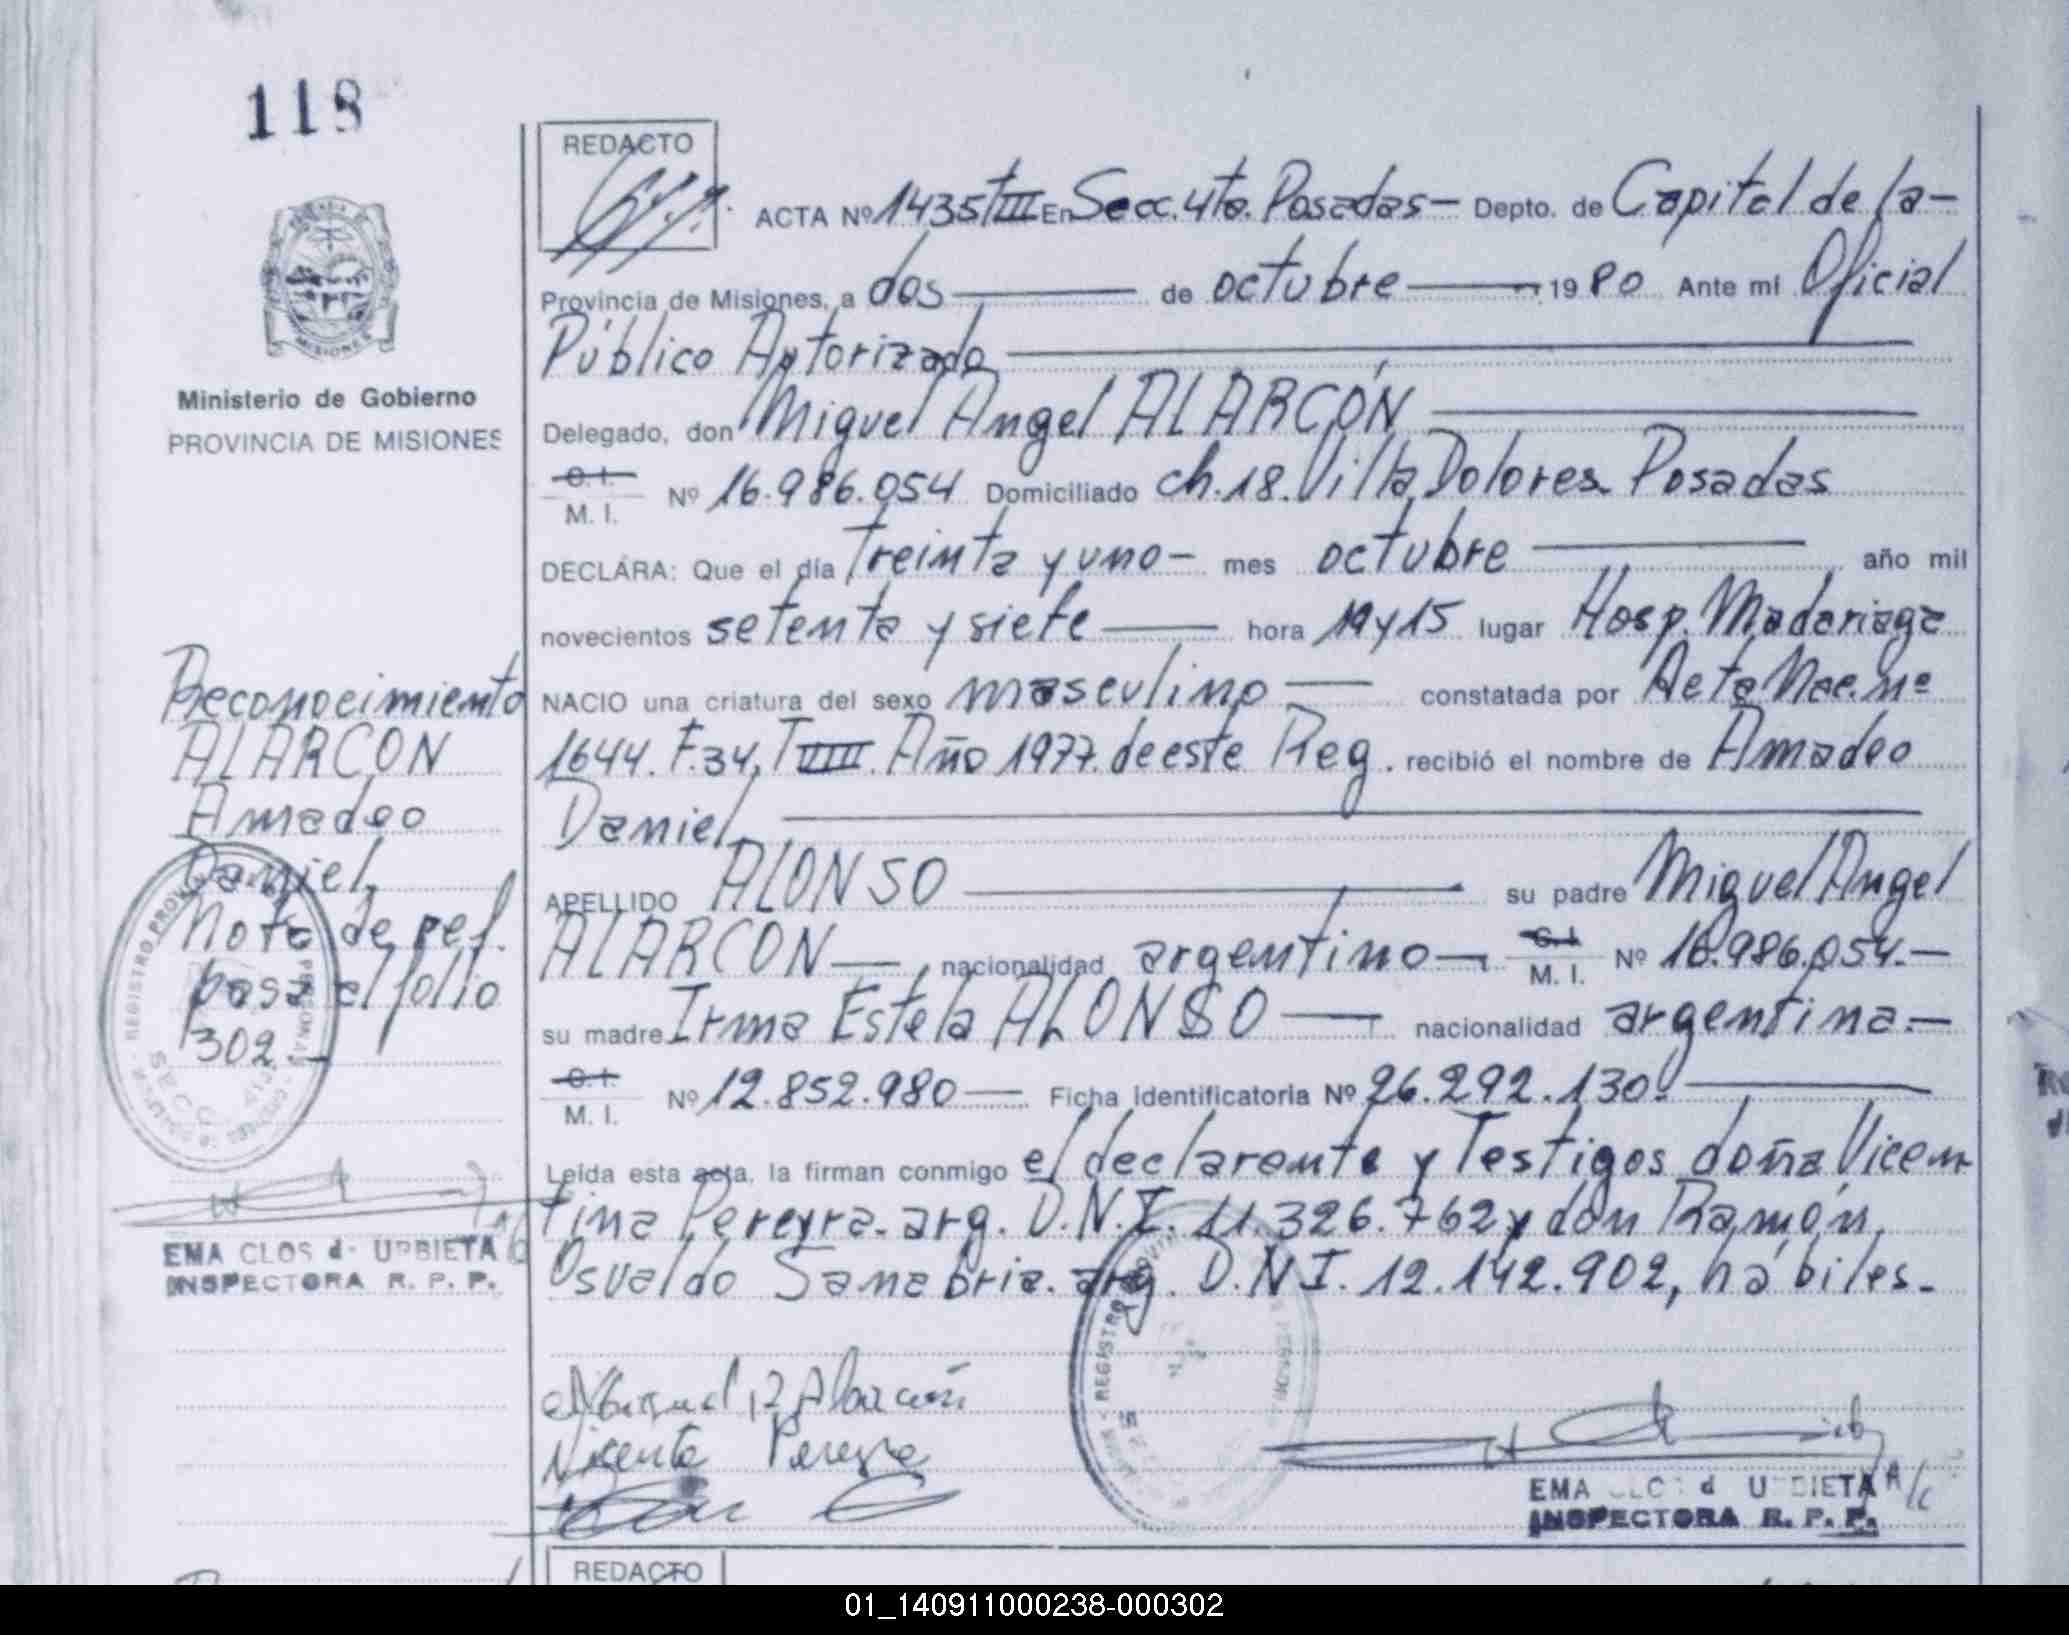 118
REDACTO
ACTA Nº 1435 TIII En Secc. 4ta. Posadas — Depto. de Capital de la —
Provincia de Misiones, a dos — de octubre — 1980 Ante mi Oficial
Público Autorizado —
Delegado, don Miguel Angel ALARCÓN —
C. I.
M. I. Nº 16.986.054 Domiciliado ch. 18. Villa Dolores Posadas
DECLARA: Que el día treinta y uno — mes octubre — año mil
novecientos setenta y siete — hora 19 y 15 lugar Hosp. Madariaga
NACIO una criatura del sexo masculino — constatada por Acta Nac. nº
1644. F. 34, T VIII. Año 1977. de este Reg. recibió el nombre de Amadeo
Daniel, —
APELLIDO ALONSO — su padre Miguel Angel
ALARCON — nacionalidad argentino — C. I. M. I. Nº 16.986.054. —
su madre Irma Estela ALONSO — nacionalidad argentina. —
C. I.
M. I. Nº 12.852.980 — Ficha identificatoria Nº 26.292.130. —
Leída esta acta, la firman conmigo el declarante y Testigos doña Vicen
tina Pereyra. arg. D.N.I. 11.326.762 y don Ramón
Osvaldo Sanabria. arg. D.N.I. 12.142.902, hábiles. -
Vicenta Pereyra
EMA CLOS d URBIETA A/C
INSPECTORA R. P. P.
MISIONES
Ministerio de Gobierno
PROVINCIA DE MISIONES
Reconocimiento
ALARCON
Amadeo
Daniel,
Nota de ref.
pasa al folio
302. -
EMA CLOS d URBIETA
INSPECTORA R. P. P.
REDACTO
01_140911000238-000302